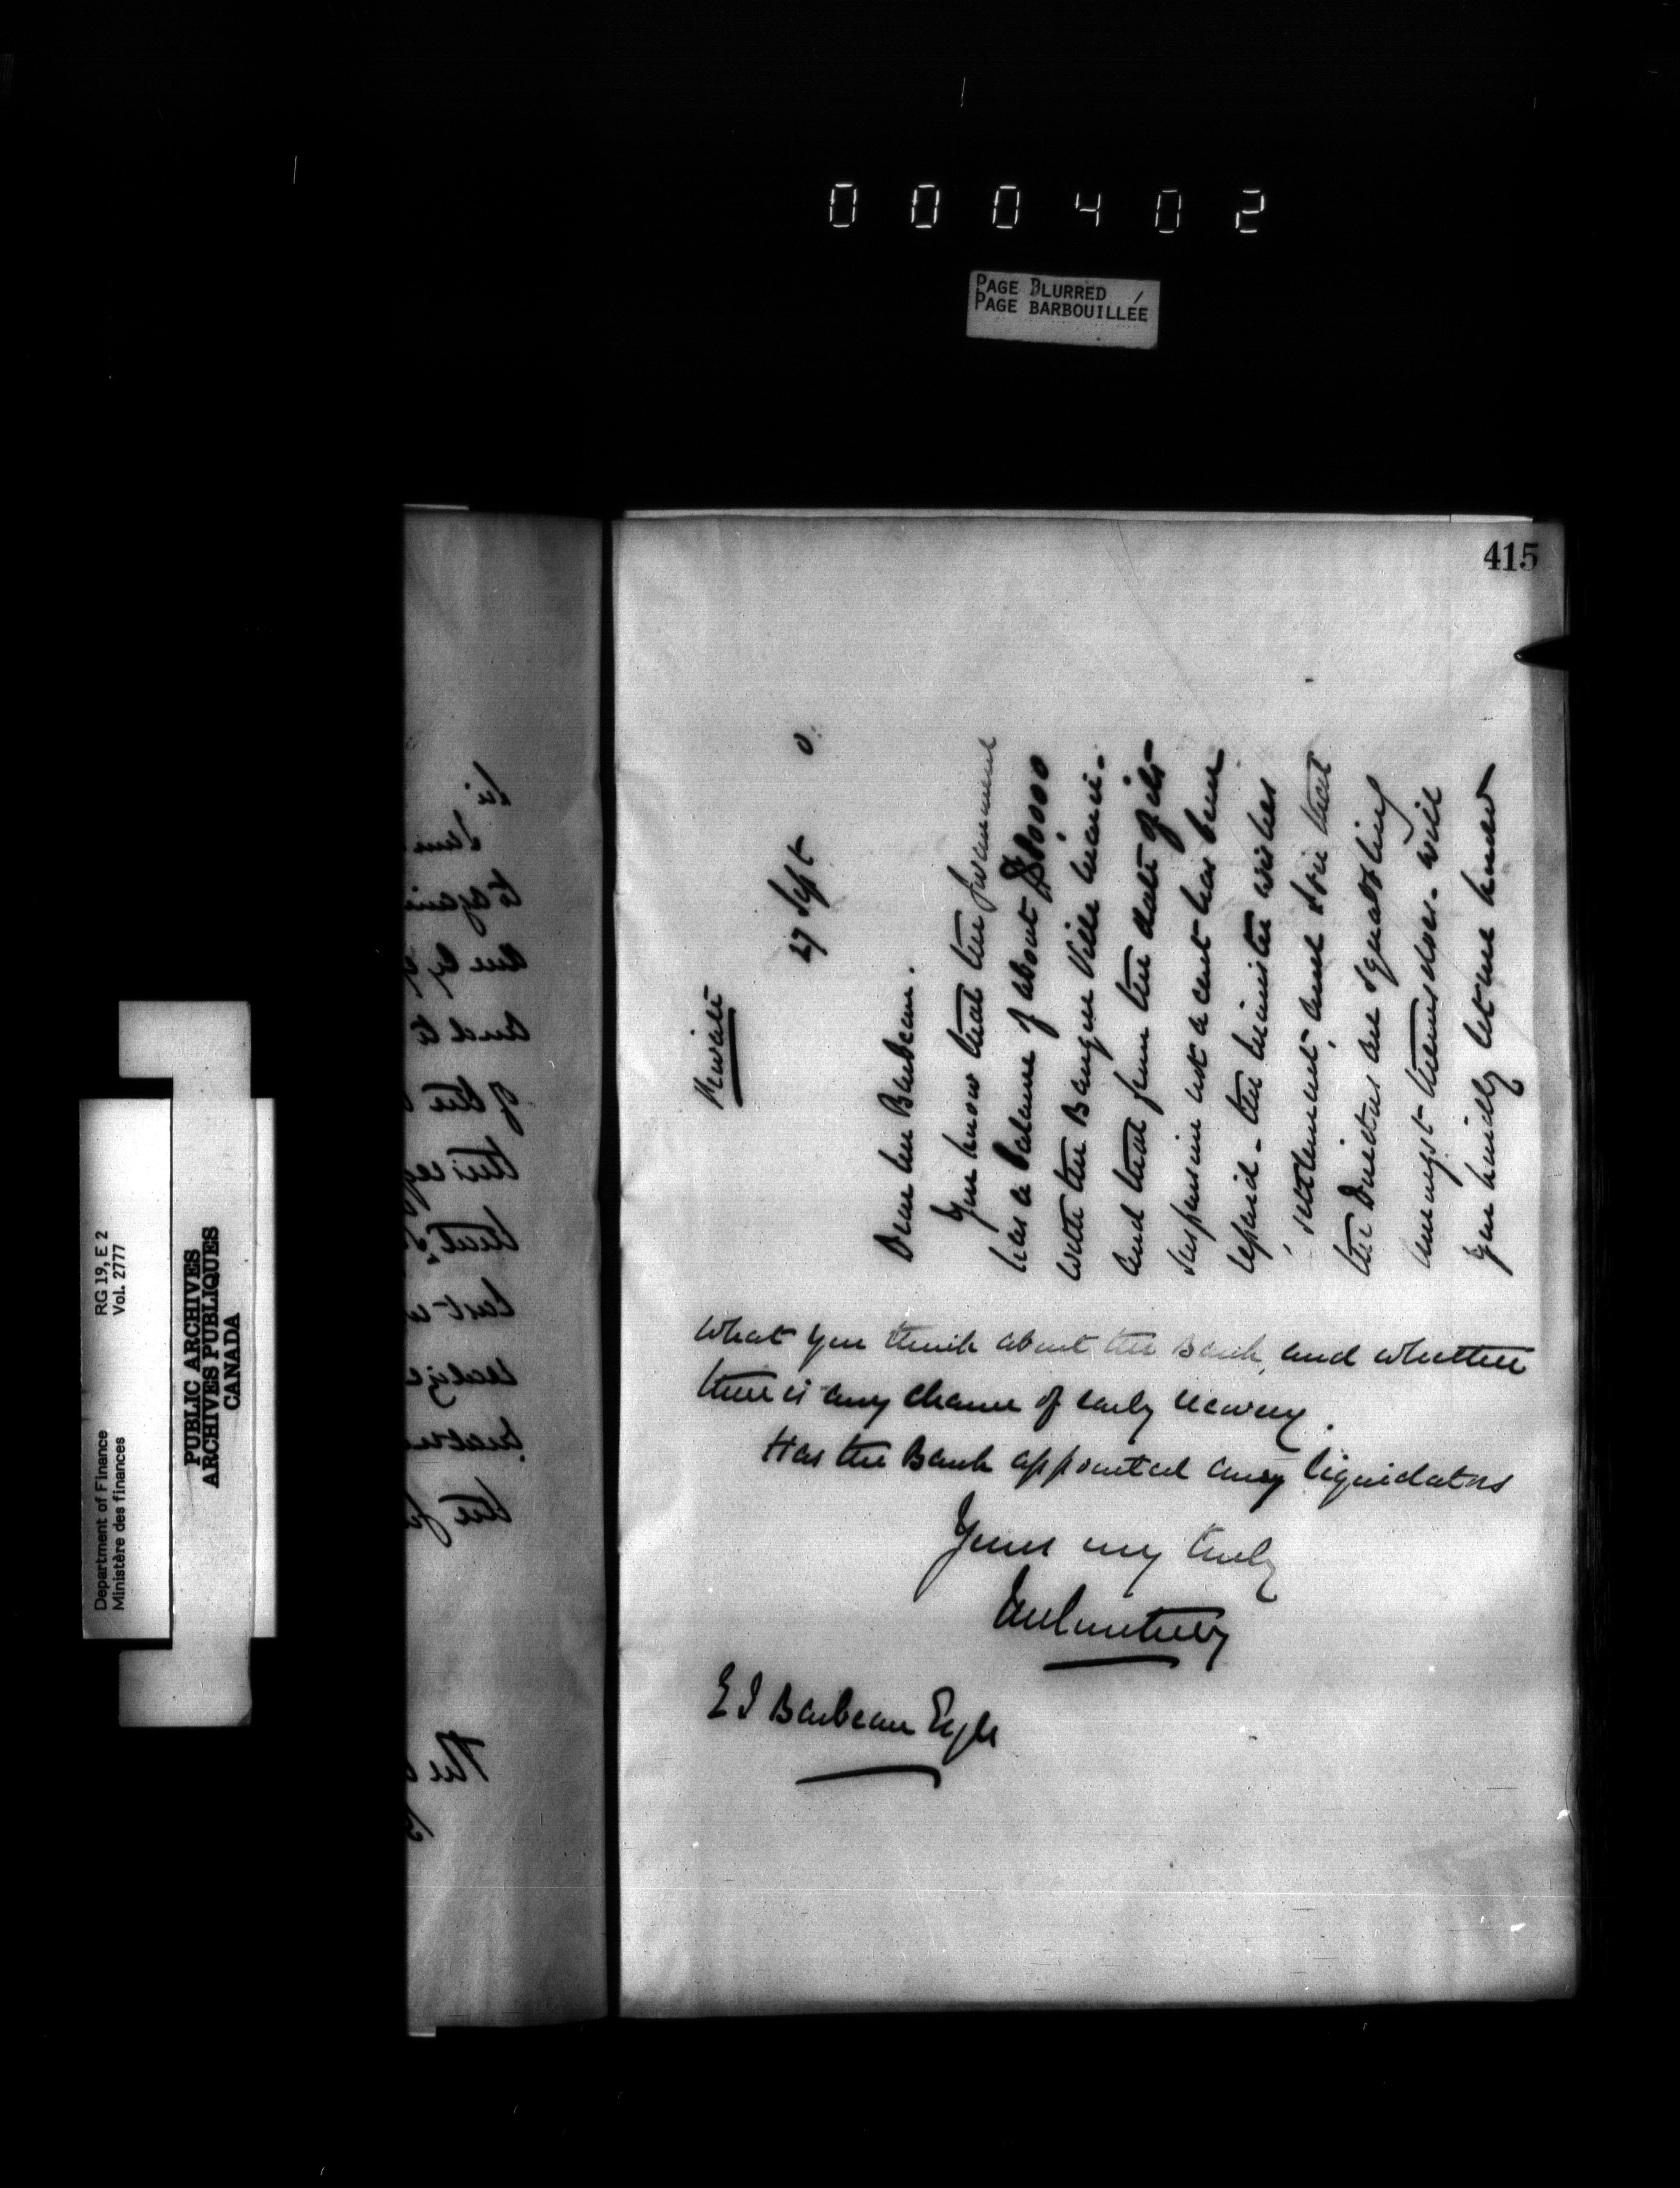 000402
PAGE BLURRED
PAGE BARBOUILLÉE
415
Private
27 Sept 0
Dear Mr Barbeau.
You know that the Government
has a balance of about $80,000
with the Banque Ville Marie.
and that from the date of its
suspension not a cent has been
repaid - the minister wishes
settlement, and
the Directors are squabbling
amongst themselves - will
you kindly let me know
what you think about the Bank, and whether
there is any chance of early recovery.
Has the Bank appointed any liquidators
Yours very truly
JMCourtney
E J Barbeau Esqre
Department of Finance RG 19, E 2
Ministère des finances Vol. 2777
PUBLIC ARCHIVES
ARCHIVES PUBLIQUES
CANADA